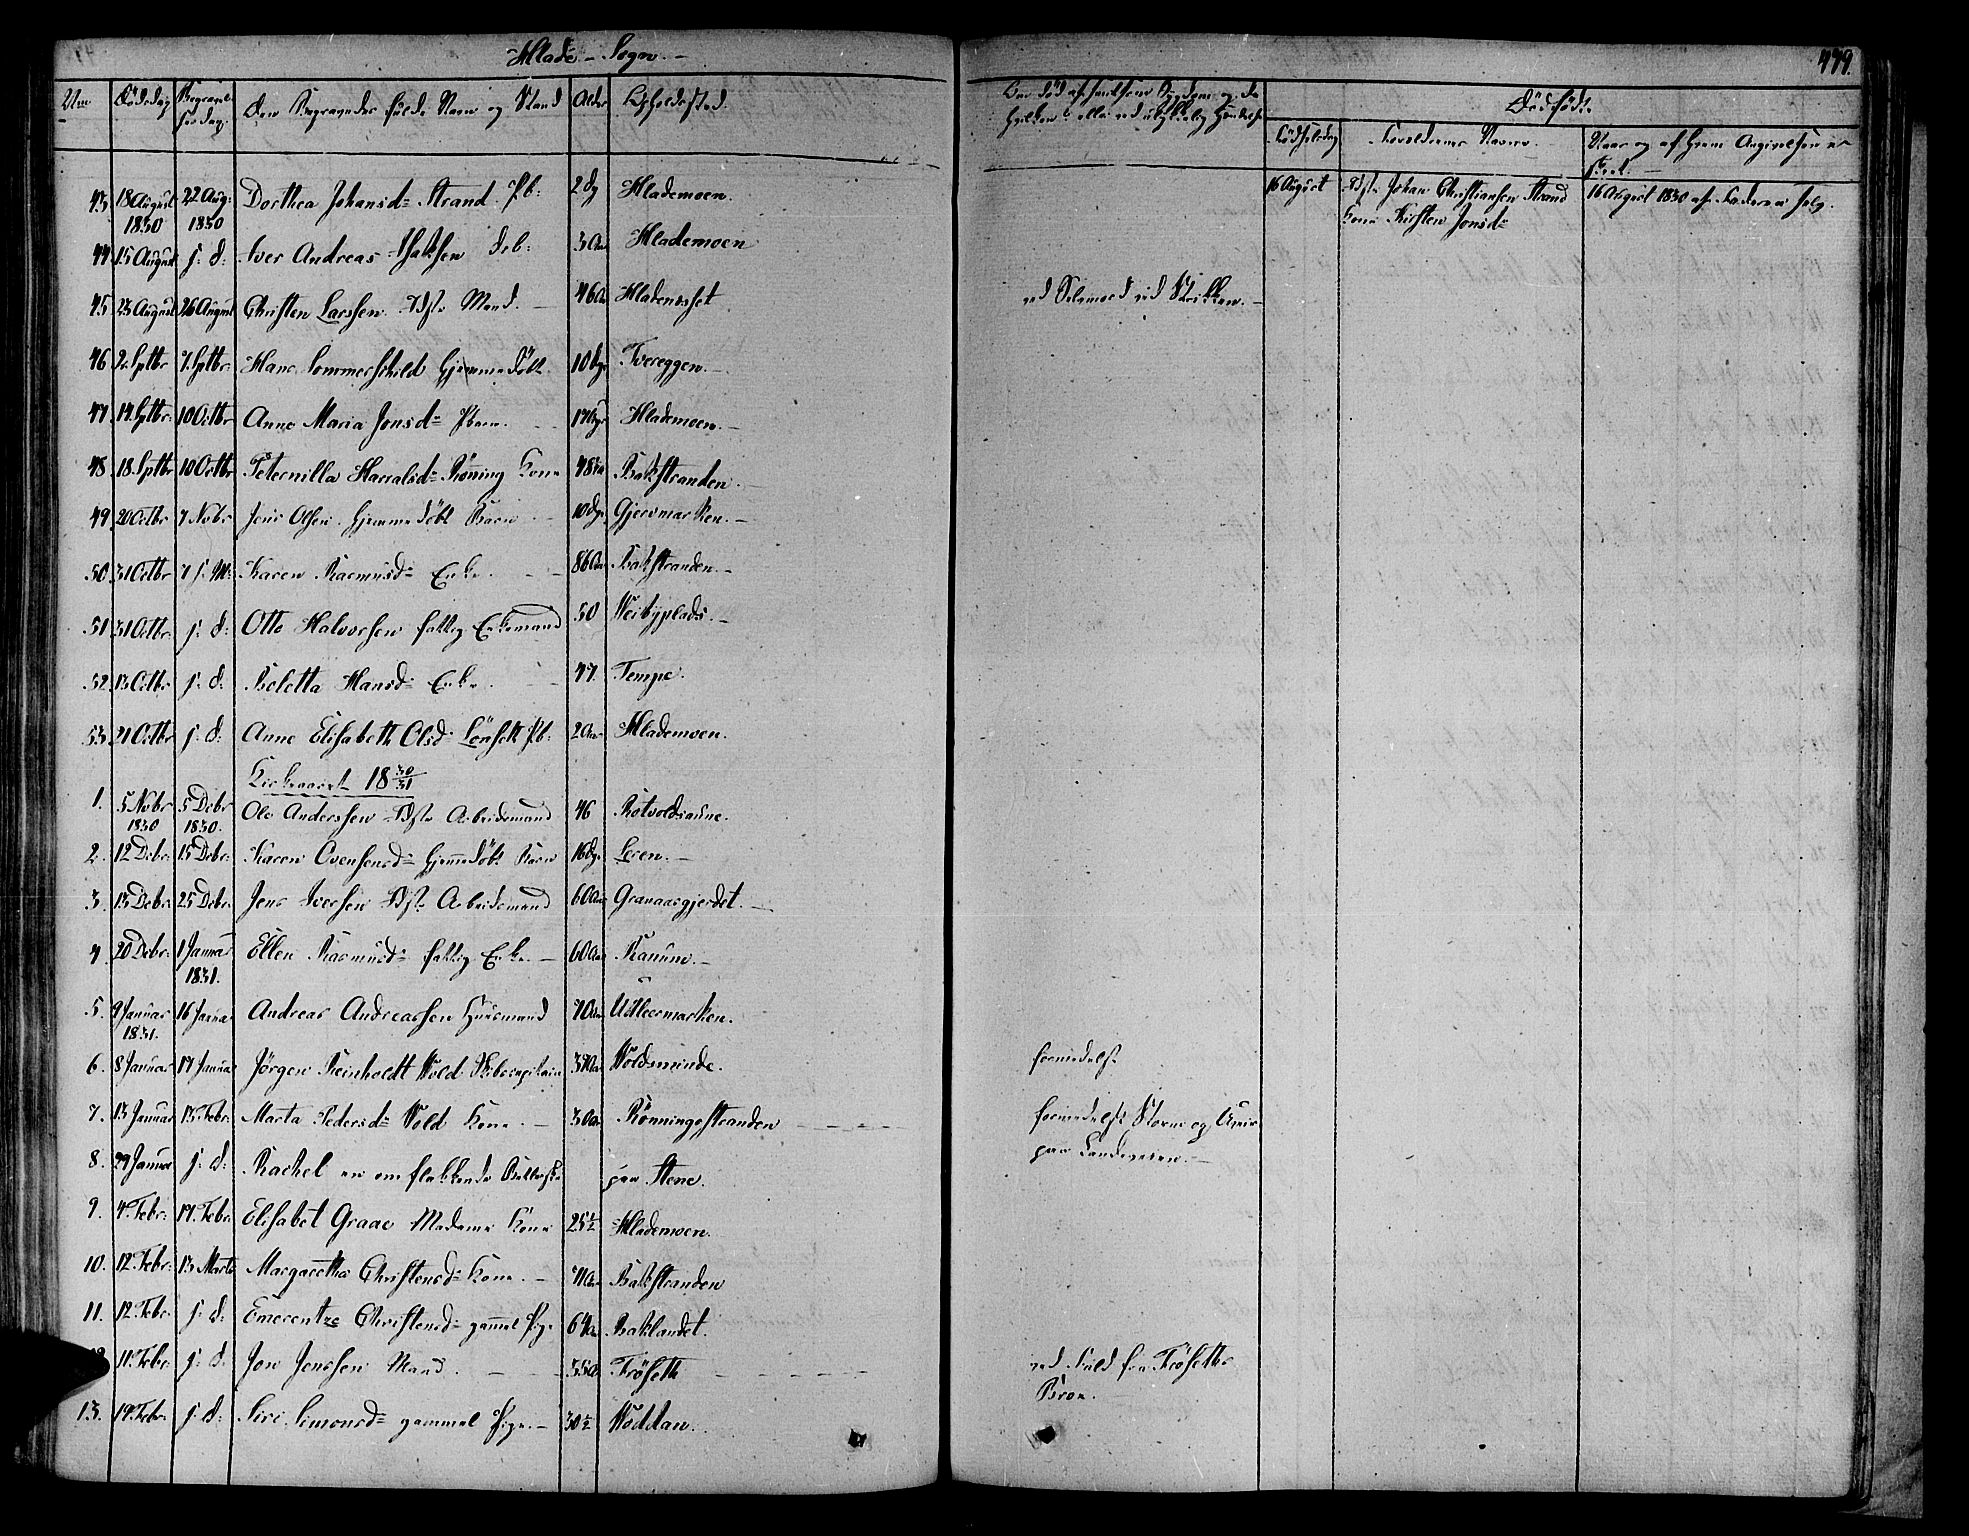 Hlade - Sogn. -
479.
No Dödsdag Begravelsesdag. Den Begravedes fulde Navn og Stand Alder Opholdssted.
Dødfødte
Födselsdag Forældrenes Navne.
43. 18 August 1830 22 Aug: 1830 Dorthea Johansd: Strand. Pb: 2 dg Hlademoen.
16 August Johan Christiansen Strand Kone Kirsten Jonsd: 16 August 1830 af Faderen selv.
44 15 August s: d: Iver Andreas Isaksen db: 3 Aar Hlademoen
45 23 August 26 August Christen Larssen Mand. - 46 Aar ved Selvmord ved Strikken. -
46 2 Sptbr 7. Sptbr: Hans Sommerschild Hjemmedöbt. 10 dge Tvereggen. -
47. 14. Sptbr: 10 Octbr Anne Maria Jonsd: Pbarn. 17 dge Hlademoen. -
48 18. Sptbr 10 Octbr Peternilla Harralsd: Rönning Kone 48 Aar Bakstranden. -
49 20 Octbr 7 Nobr Jens Olsen Hjemmedöbt Barn - 10 dge Gjervmarken. -
50 31 Octbr 7 s: M: Karen Rasmusd: Enke. 86 Aar Bakstranden. -
51 31 Octbr: s: d: Otto Halvorsen fattig Enkemand 50 Weibyplads. -
52. 13 Octbr s: d: Beletta Hansd: Enke. 47. Tempe.
53. 21 Octbr s: d: Anne Elisabeth Olsd: Lönseth Pb: 2 Aar Hlademoen.
Kirkeaaret 18 30/31
1. 5 Nobr 1830 5 Debr 1830. Ole Anderssen Arbeidsmand 46 Rotvoldsaune.
2. 12 Debr: 15 Debr: Karen Evensensd: Hjemmedöbt Barn 16 dge Leren. -
3. 13 Debr: 25 Debr: Jens Iversen Arbeidsmand 60 Aar Granaasgjerdet. -
4. 20 Debr: 1 Januar 1831. Ellen Rasmusd: fattig Enke. - 60 Aar Ranum. -
5. 9 Januar 1831. 16 Januar Andreas Andreassen Huusmand 70 Aar Udleermarken.
6. 8 Januar 17 Januar Jörgen Reinholdt Wold Skibscapitain 37 Aar Woldsminde. formedelst
7. 13 Januar 13 Febr: Marta Pedersd: Wold Kone. - 30 Aar Rönningsstranden formedelst Storm og Uveir
paa Landeveien. -
8. 29 Januar s: d: Rachel en omflakkende paa Stene.
9. 4. Febr: 17. Febr: Elisabet Graae Madame Kone 25 1/2 Hlademoen.
10. 12. Febr: 13 Marts Margarethe Christensd: Kone. - 71 Aar Bakstranden
11. 12. Febr: s: d: Emerentze Christensd: gammel Pige 64 Aar Baklandet.
11. Febr: s: d: Jon Jonssen Mand. 35 Aar Fröseth ved Fald fra Fröseths
Broe. -
13. 19. Febr: s: d: Siri Simonsd: gammel Pige. - 30 1/2 Woddan.